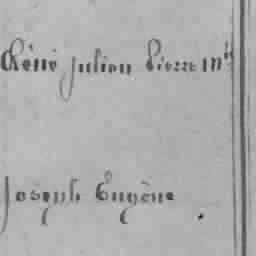 Réné Julien Pierre M.ie
Joseph Eugène